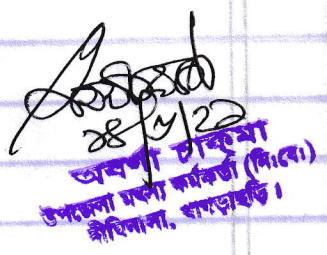 ২৪/৮/২১
অবর্ণা চাকমা
উপজেলা মৎস্য কর্মকর্তা (নিঃবেঃ)
দীঘিনালা, খাগড়াছড়ি।